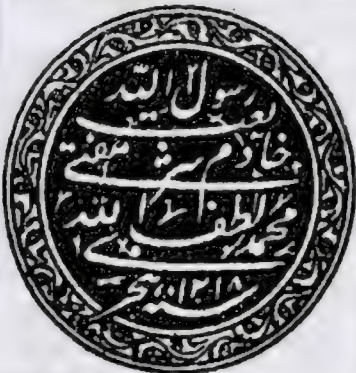 رسول الله
خادم شرع مفتی
محمد لطف الله
۱۲۱۸ هجری